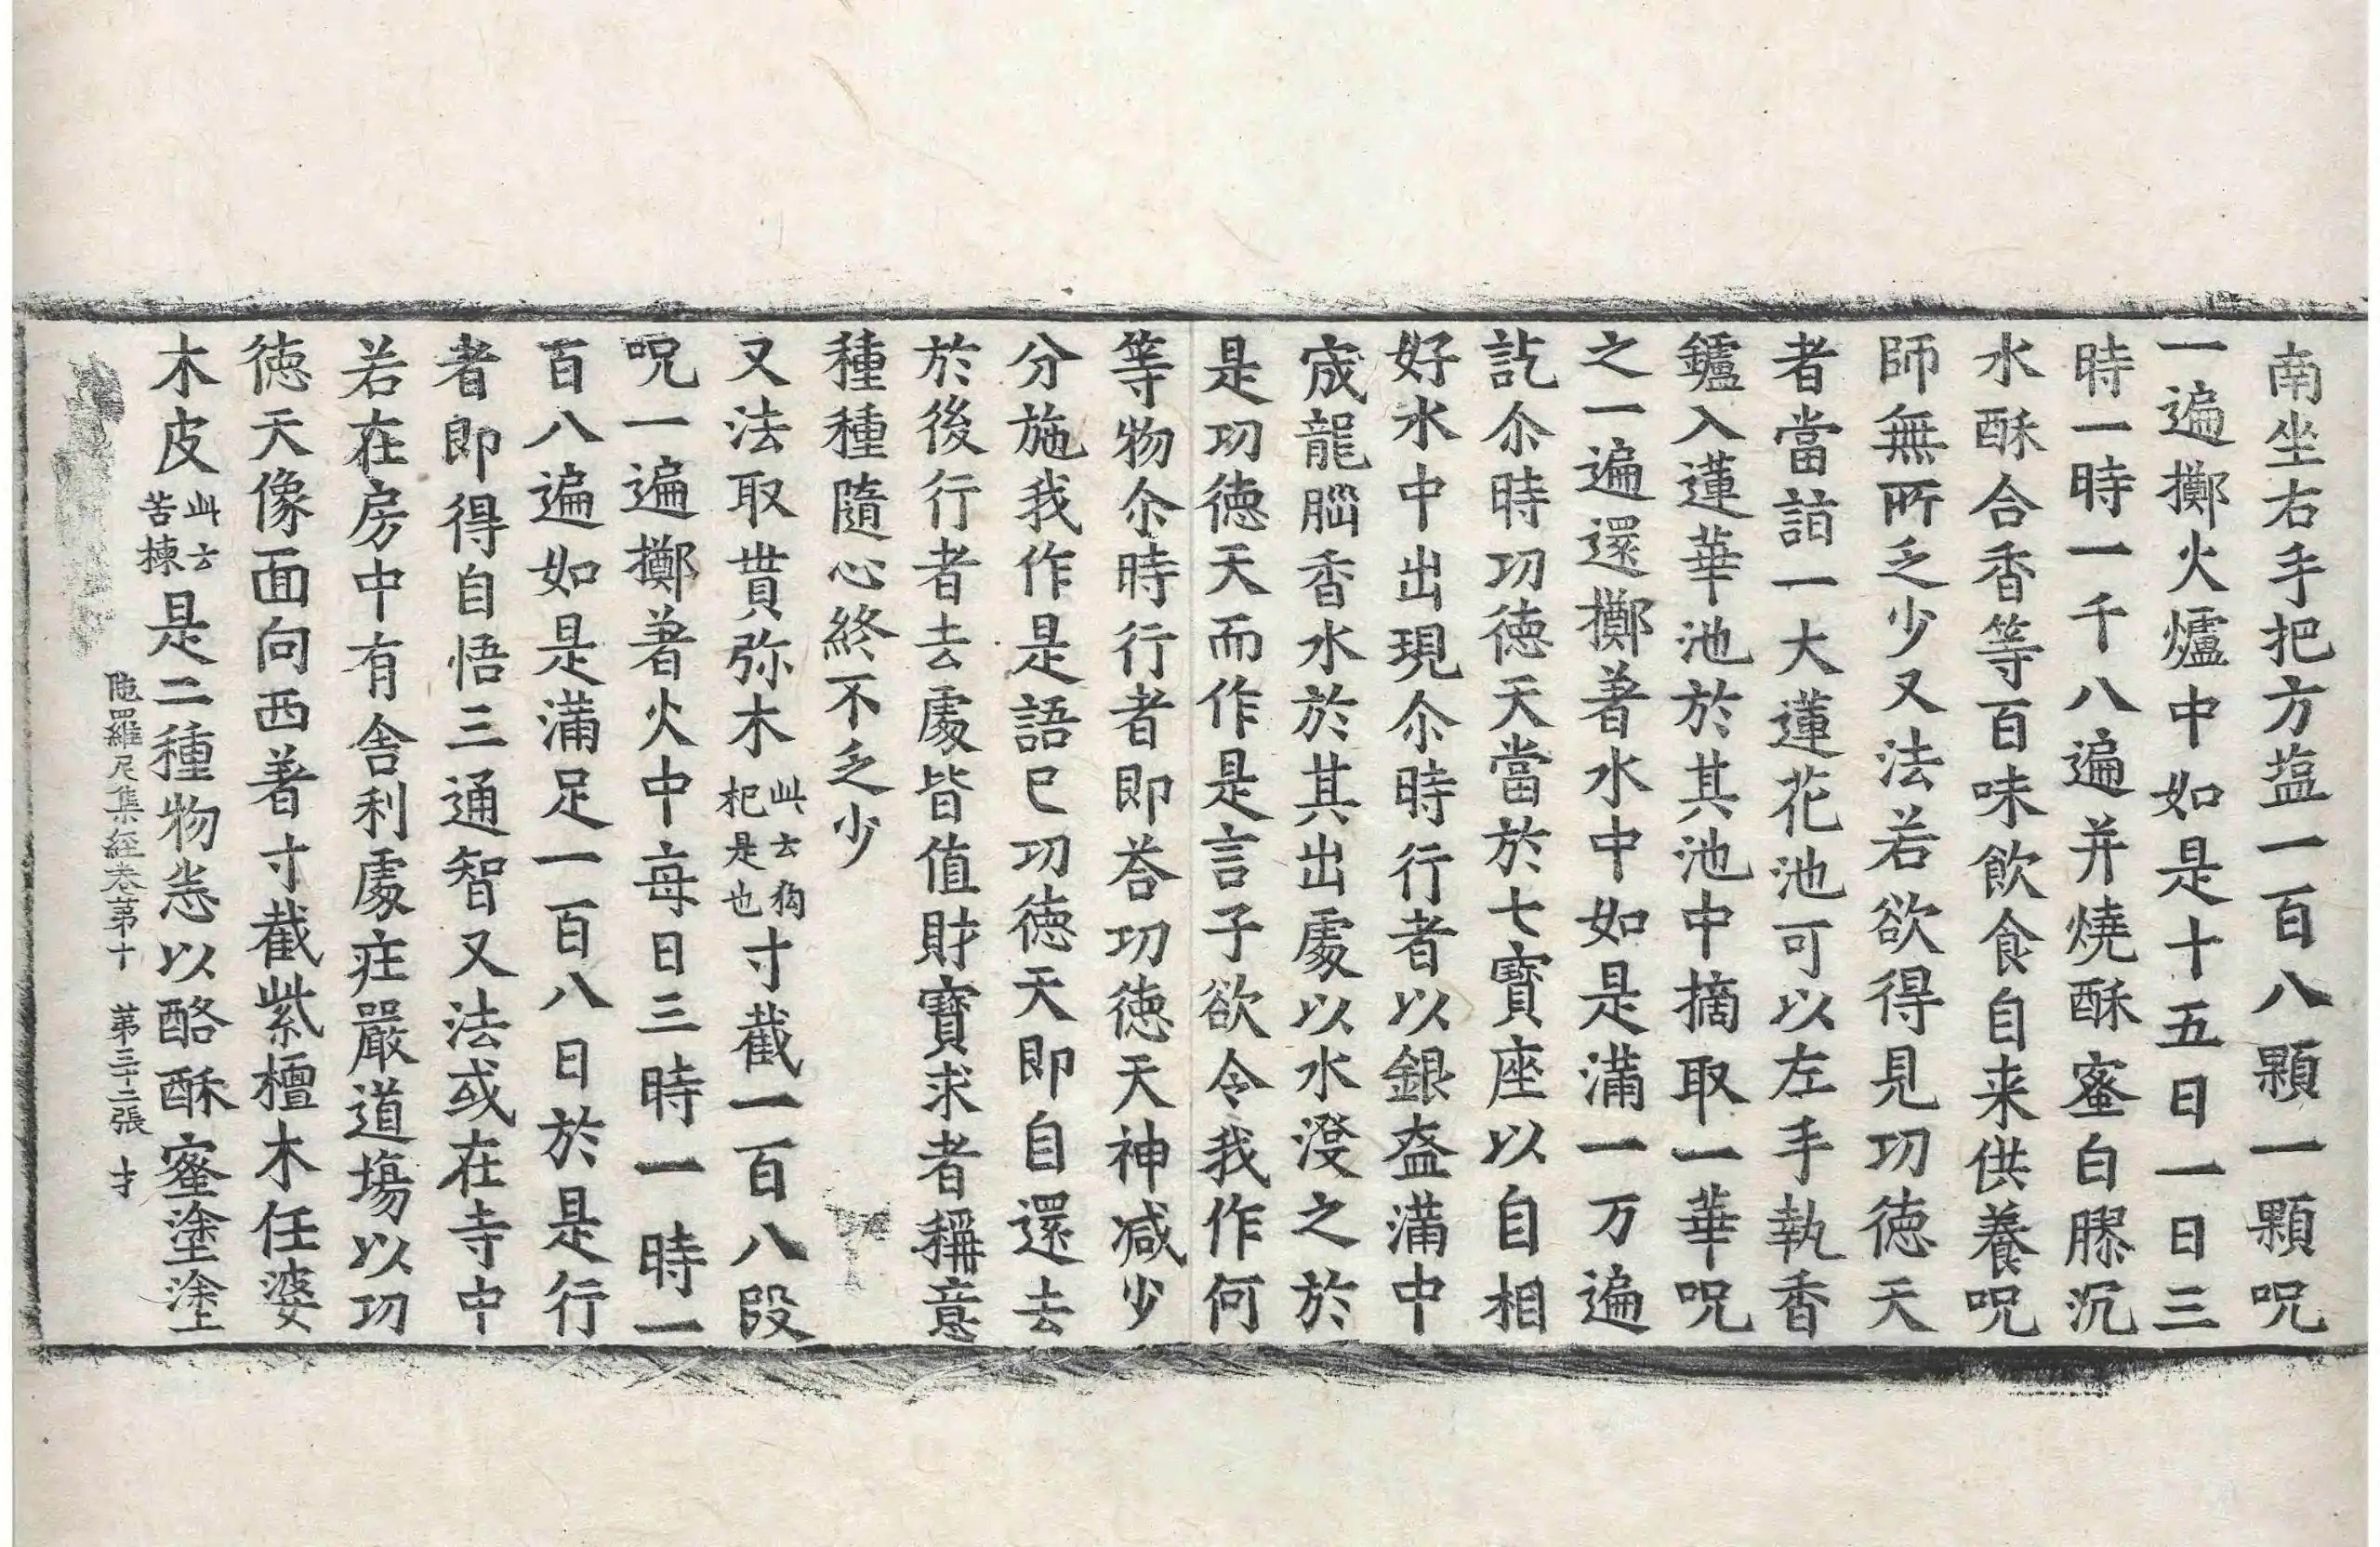 南坐右手把方塩一百八顆一顆呪
一遍擲火爐中如是十五日一日三
時一時一千八遍并燒酥蜜白膠沉
水酥合香等百味飲食自来供養呪
師無所乏少又法若欲得見功德天
者當詣一大蓮花池可以左手執香
鑪入蓮華池於其池中摘取一華呪
之一遍還擲著水中如是滿一万遍
訖尒時功徳天當於七寶座以自相
好水中出現尒時行者以銀盔滿中
宬龍腦香水於其出處以水澆之於
是功德天而作是言子欲令我作何
等物尒時行者即荅功徳天神減少
分施我作是語已功徳天即自還去
於後行者去處皆值財寶求者稱意
種種隨心終不乏少
又法取蓂弥木此云狗杞是也寸截一百八段
呪一遍擲著火中每日三時一時一
百八遍如是滿足一百八日於是行
者即得自悟三通智又法或在寺中
若在房中有舍利處疘嚴道場以功
徳天像面向西著寸截紫檀木任婆
木皮此云苦揀是二種物悉以酪酥蜜塗塗
陁羅尼集經卷第十　第三十二張　才